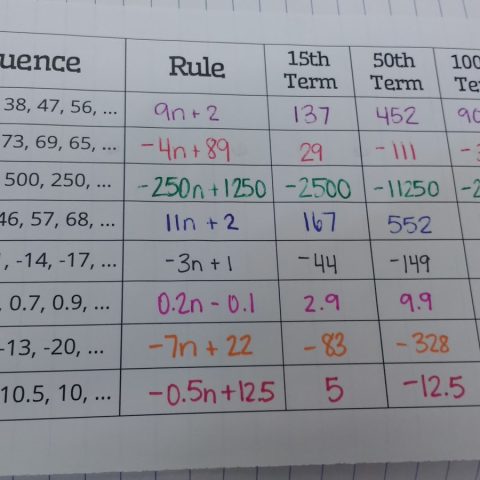 uence Rule 15th Term 50th Term 100 Te
38, 47, 56, ... 9n + 2 137 452 90
73, 69, 65, ... -4n + 89 29 -111 -3
500, 250, ... -250n + 1250 -2500 -11250 -2
46, 57, 68, ... 11n + 2 167 552
, -14, -17, ... -3n + 1 -44 -149
, 0.7, 0.9, ... 0.2n - 0.1 2.9 9.9
-13, -20, ... -7n + 22 -83 -328
10.5, 10, ... -0.5n + 12.5 5 -12.5